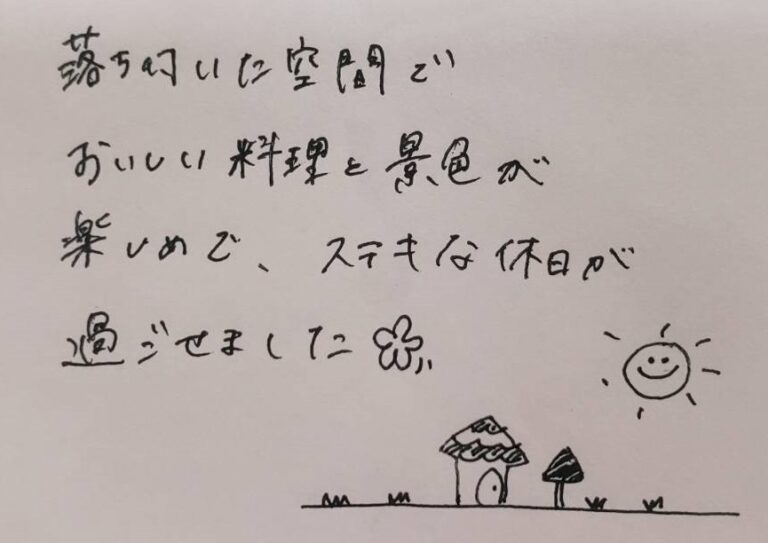 落ち付いた空間で
おいしい料理と景色が
楽しめて、ステキな休日が
過ごせました